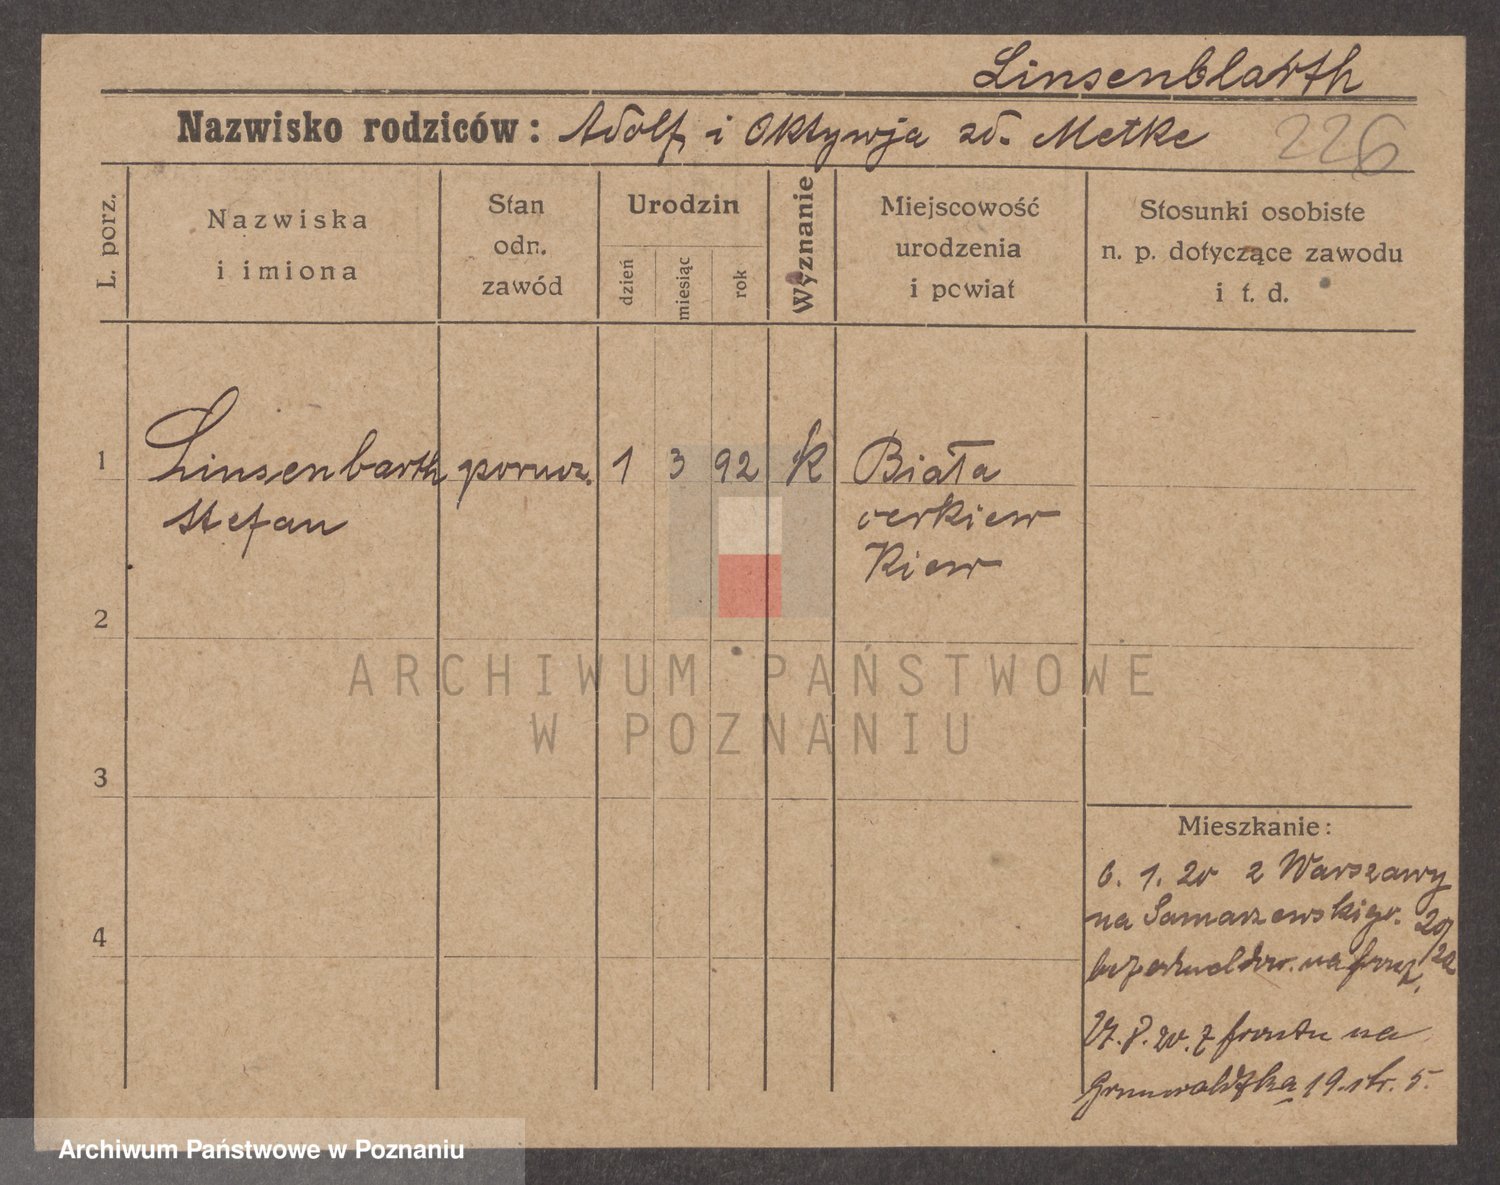 Linsenblarth
Nazwisko rodziców: Adolf i Oktywja zd. Metke 226
L. porz.
Nazwiska
i imiona
Stan
odn.
zawód
Urodzin
dzień
miesiąc
rok
Wyznanie
Miejscowość
urodzenia
i powiat
Stosunki osobiste
n. p. dotyczące zawodu
i t. d.
1 Linsenbarth porucz. 1 3 92 k Biała
Stefan cerkiew
Kiew
2
3
4
ARCHIWUM PAŃSTWOWE
W POZNANIU
Mieszkanie:
6. 1. 20 z Warszawy
na Samarzewskiego. 20/
na 22
27. 8. 20. z frontu na
Grunwaldzka 19. str. 5.
Archiwum Państwowe w Poznaniu